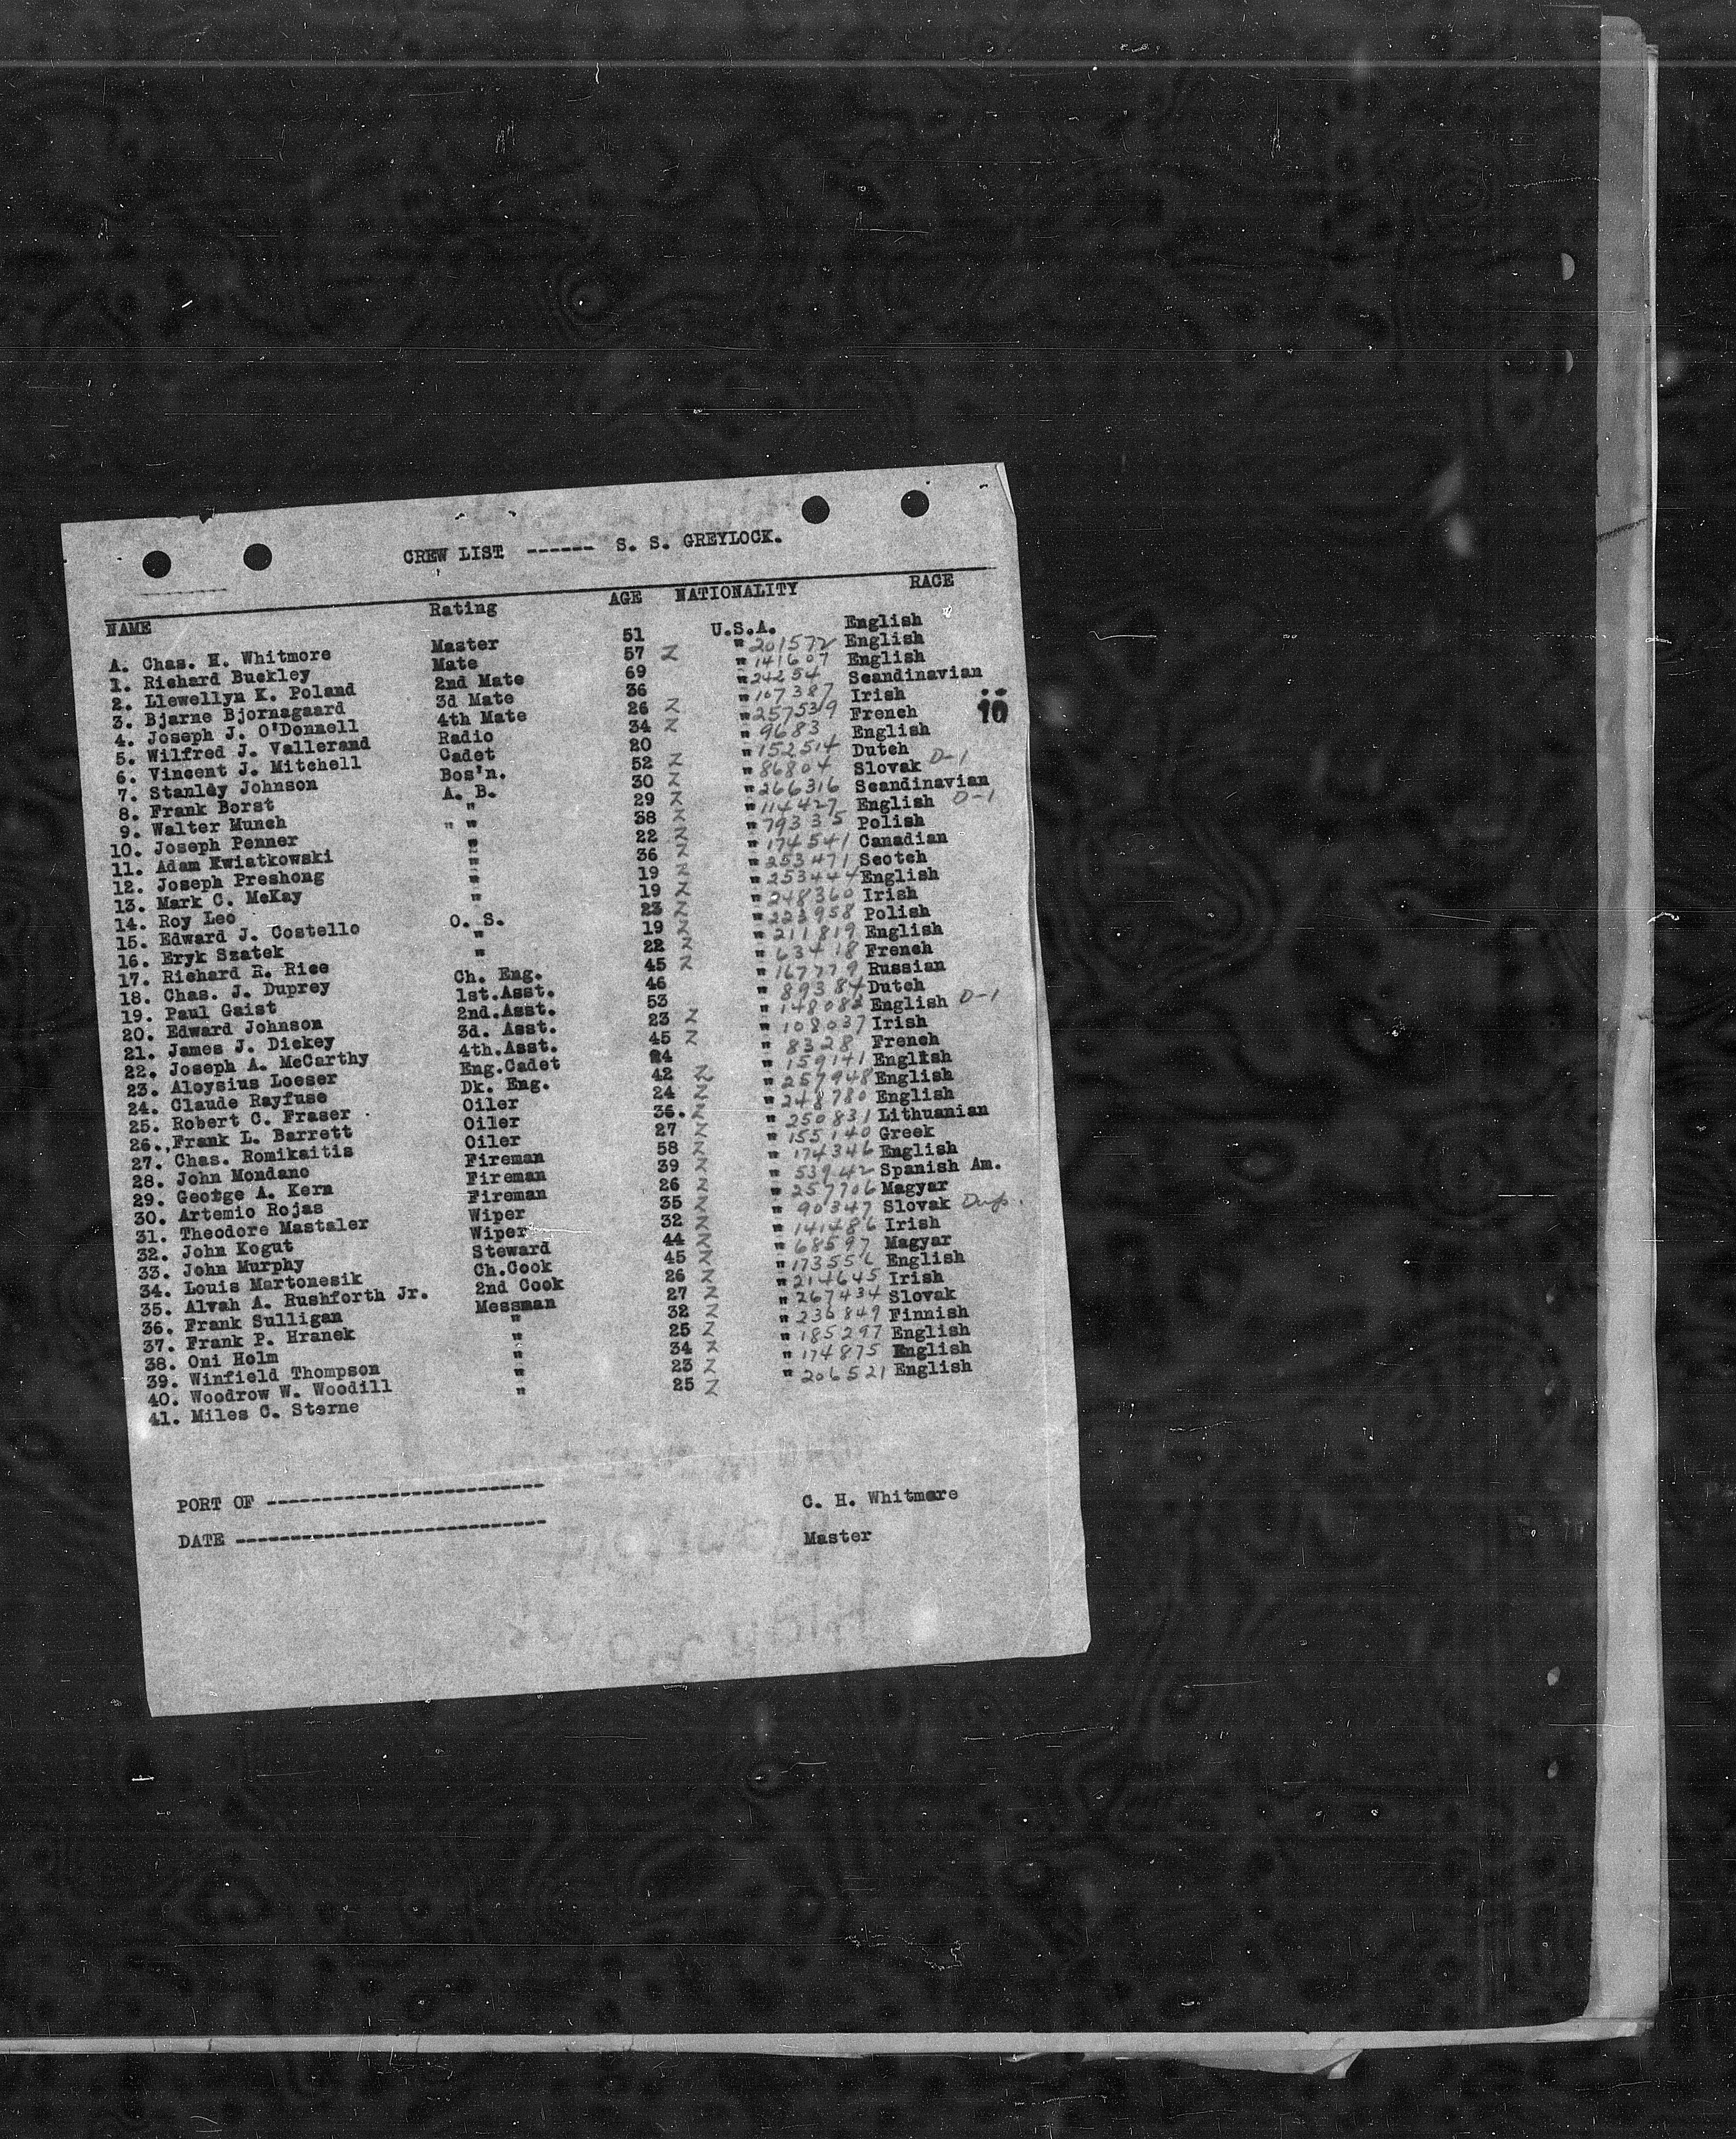 CREW LIST ------ S. S. GREYLOCK.
NAME Rating AGE NATIONALITY RACE
A. Chas. H. Whitmore Master 51 U.S.A. English
1. Richard Buckley Mate 57 Z " 201572 English
2. Llewellyn K. Poland 2nd Mate 69 " 141607 English
3. Bjarne Bjornagaard 3d Mate 36 " 24254 Scandinavian
4. Joseph J. O'Donnell 4th Mate 26 Z " 107387 Irish
10
5. Wilfred J. Vallerand Radio 34 Z " 257539 French
6. Vincent J. Mitchell Cadet 20 " 9683 English
7. Stanley Johnson Bos'n. 52 Z " 152514 Dutch
8. Frank Borst A. B. 30 Z " 86804 Slovak D-1
9. Walter Munch " 29 Z " 266316 Scandinavian
10. Joseph Penner " " 38 Z " 114427 English D-1
11. Adam Kwiatkowski " 22 Z " 79335 Polish
12. Joseph Preshong " 36 Z " 174541 Canadian
13. Mark C. McKay " 19 Z " 253471 Scotch
14. Roy Leo " 19 Z " 253444 English
15. Edward J. Costello O. S. 23 Z " 248360 Irish
16. Eryk Szatek " 19 Z " 223958 Polish
17. Richard R. Rice " 22 Z " 211819 English
18. Chas. J. Duprey Ch. Eng. 45 Z " 63418 French
19. Paul Gaist 1st.Asst. 46 " 167779 Russian
20. Edward Johnson 2nd.Asst. 53 " 89384 Dutch
21. James J. Dickey 3d. Asst. 23 Z " 148082 English D-1
22. Joseph A. McCarthy 4th.Asst. 45 Z " 108037 Irish
23. Aloysius Loeser Eng.Cadet 24 " 8328 French
24. Claude Rayfuse Dk. Eng. 42 Z " 159141 English
25. Robert C. Fraser Oiler 24 Z " 257948 English
26. Frank L. Barrett Oiler 36. Z " 248780 English
27. Chas. Romikaitis Oiler 27 Z " 250831 Lithuanian
28. John Mondano Fireman 58 Z " 155140 Greek
29. George A. Kern Fireman 39 Z " 174346 English
30. Artemio Rojas Fireman 26 Z " 53942 Spanish Am.
31. Theodore Mastaler Wiper 35 Z " 257706 Magyar
32. John Kogut Wiper 32 Z " 90347 Slovak Dup.
33. John Murphy Steward 44 Z " 141486 Irish
34. Louis Martonesik Ch.Cook 45 Z " 68597 Magyar
35. Alvah A. Rushforth Jr. 2nd Cook 26 Z " 173556 English
36. Frank Sulligan Messman 27 Z " 214645 Irish
37. Frank P. Hranek " 32 Z " 267434 Slovak
38. Oni Holm " 25 Z " 236849 Finnish
39. Winfield Thompson " 34 Z " 185297 English
40. Woodrow W. Woodill " 23 Z " 174875 English
41. Miles C. Sterne " 25 Z " 206521 English
PORT OF -------------------------- C. H. Whitmore
DATE ----------------------------- Master